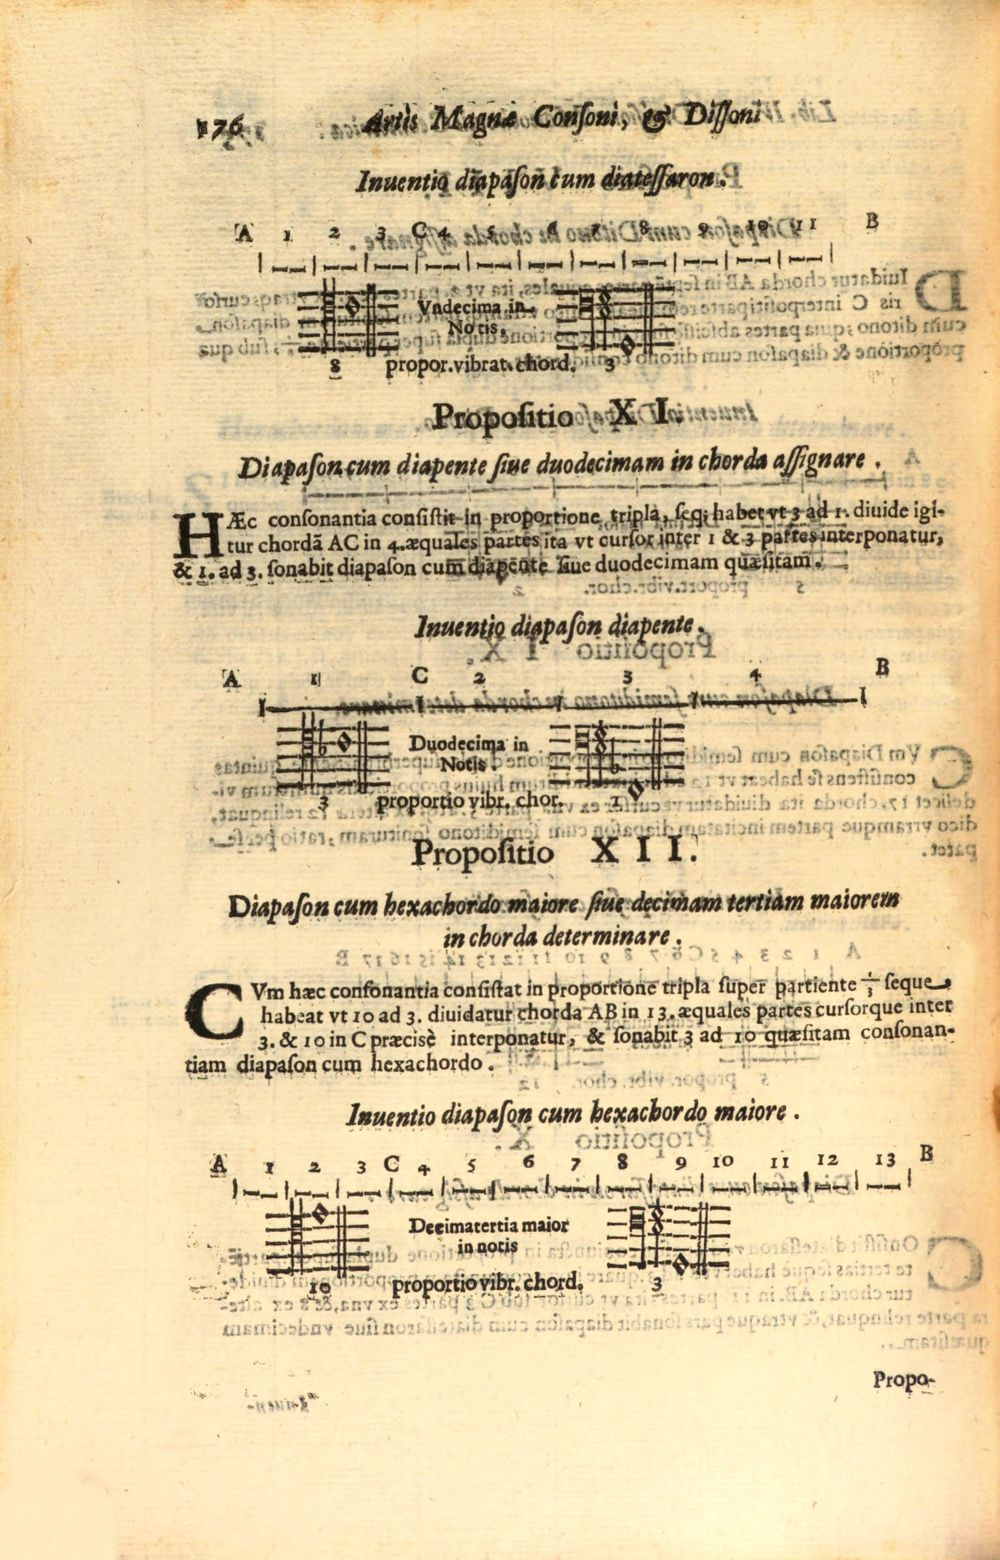 176 Artis Magnæ Consoni, & Dissoni
Inuentio diapason cum diatessaron.
A 1 2 3 C 4 5 6 7 8 9 10 11 B
Vndecima in
Notis.
8 propor. vibrat. chord. 3
Propositio XI.
Diapason cum diapente siue duodecimam in chorda assignare.
HÆc consonantia consistit in proportione tripla, seq; habet vt 3 ad 1. diuide igi-
tur chordã AC in 4. æquales partes ita vt cursor inter 1 & 3 partes interponatur,
& 1. ad 3. sonabit diapason cum diapente siue duodecimam quæsitam.
Inuentio diapason diapente.
A 1 C 2 3 4 B
Duodecima in
Notis
3 proportio vibr. chor. 1
Propositio XII.
Diapason cum hexachordo maiore siue decimam tertiam maiorem
in chorda determinare.
CVm hæc consonantia consistat in proportione tripla super partiente 1/3 seque
habeat vt 10 ad 3. diuidatur chorda AB in 13. æquales partes cursorque inter
3. & 10 in C præcisè interponatur, & sonabit 3 ad 10 quæsitam consonan-
tiam diapason cum hexachordo.
Inuentio diapason cum hexachordo maiore.
A 1 2 3 C 4 5 6 7 8 9 10 11 12 13 B
Decimatertia maior
in notis
10 proportio vibr. chord. 3
Propo-